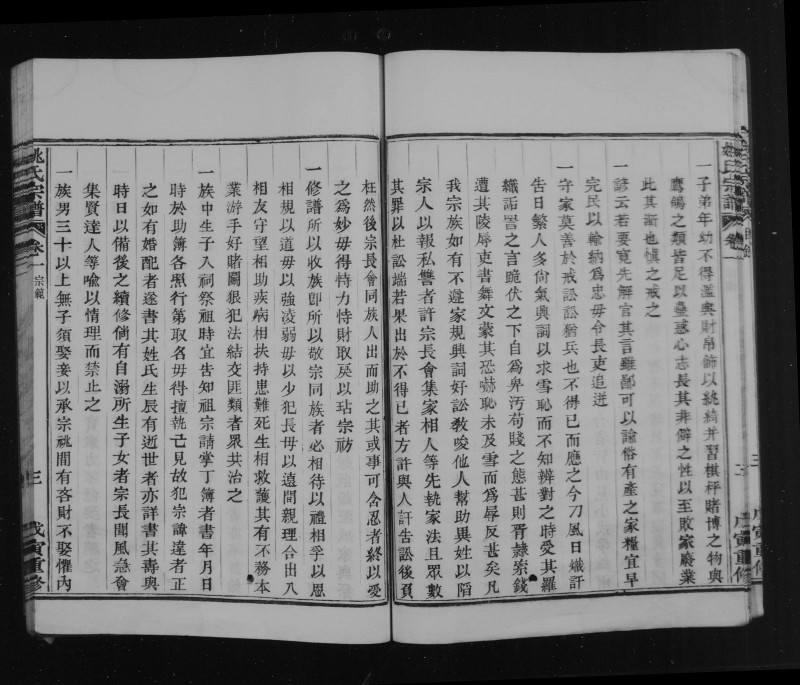 一子弟年幼不得濫與財帛飾以紈綺并習棋枰賭博之物與
鷹鷂之類皆足以蠱惑心志長其非僻之性以至敗家廢業
此其漸也慎之戒之
一諺云若要寬先辦官其言雖鄙可以諭俗有產之家糧宜早
完民以輸納為忠毋令長吏追逬
一守家莫善於戒訟訟猶兵也不得已而應之今刀風日熾訐
告日繁人多尙氣興詞以求雪恥而不知辨對之時受其羅
織詬詈之言跪伏之下自為卑汚苟賤之態甚則胥隸索錢
遭其陵辱吏書舞文蒙其恐嚇恥未及雪而為辱反甚矣凡
我宗族如有不遵家規興詞好訟敎唆他人幫助異姓以䧟
宗人以報私讐者許宗長會集家相人等先執家法且眾數
其罪以杜訟端若果出於不得已者方許與人訐吿訟後負
枉然後宗長會同族人出而助之其或事可含忍者終以愛
之為妙毋得恃力恃財取戾以玷宗祊
一修譜所以收族卽所以敬宗同族者必相待以禮相孚以恩
相規以道毋以強凌弱毋以少犯長毋以遠間親理合出入
相友守望相助疾病相扶持患難死生相救護其有不務本
業游手好賭鬭狠犯法結交匪類者眾共治之
一族中生子入祠祭祖時宜吿知祖宗請掌丁簿者書年月日
時於助簿各照行第取名毋得擅執己見故犯宗諱違者正
之如有婚配者遂書其姓氏生辰有逝世者亦詳書其壽與
時日以備後之續修倘有自溺所生子女者宗長聞風急會
集賢達人等喻以情理而禁止之
一族男三十以上無子須娶妾以承宗祧間有吝財不娶懼內
姚氏宗譜
卷一
宗範
三
戊寅重修